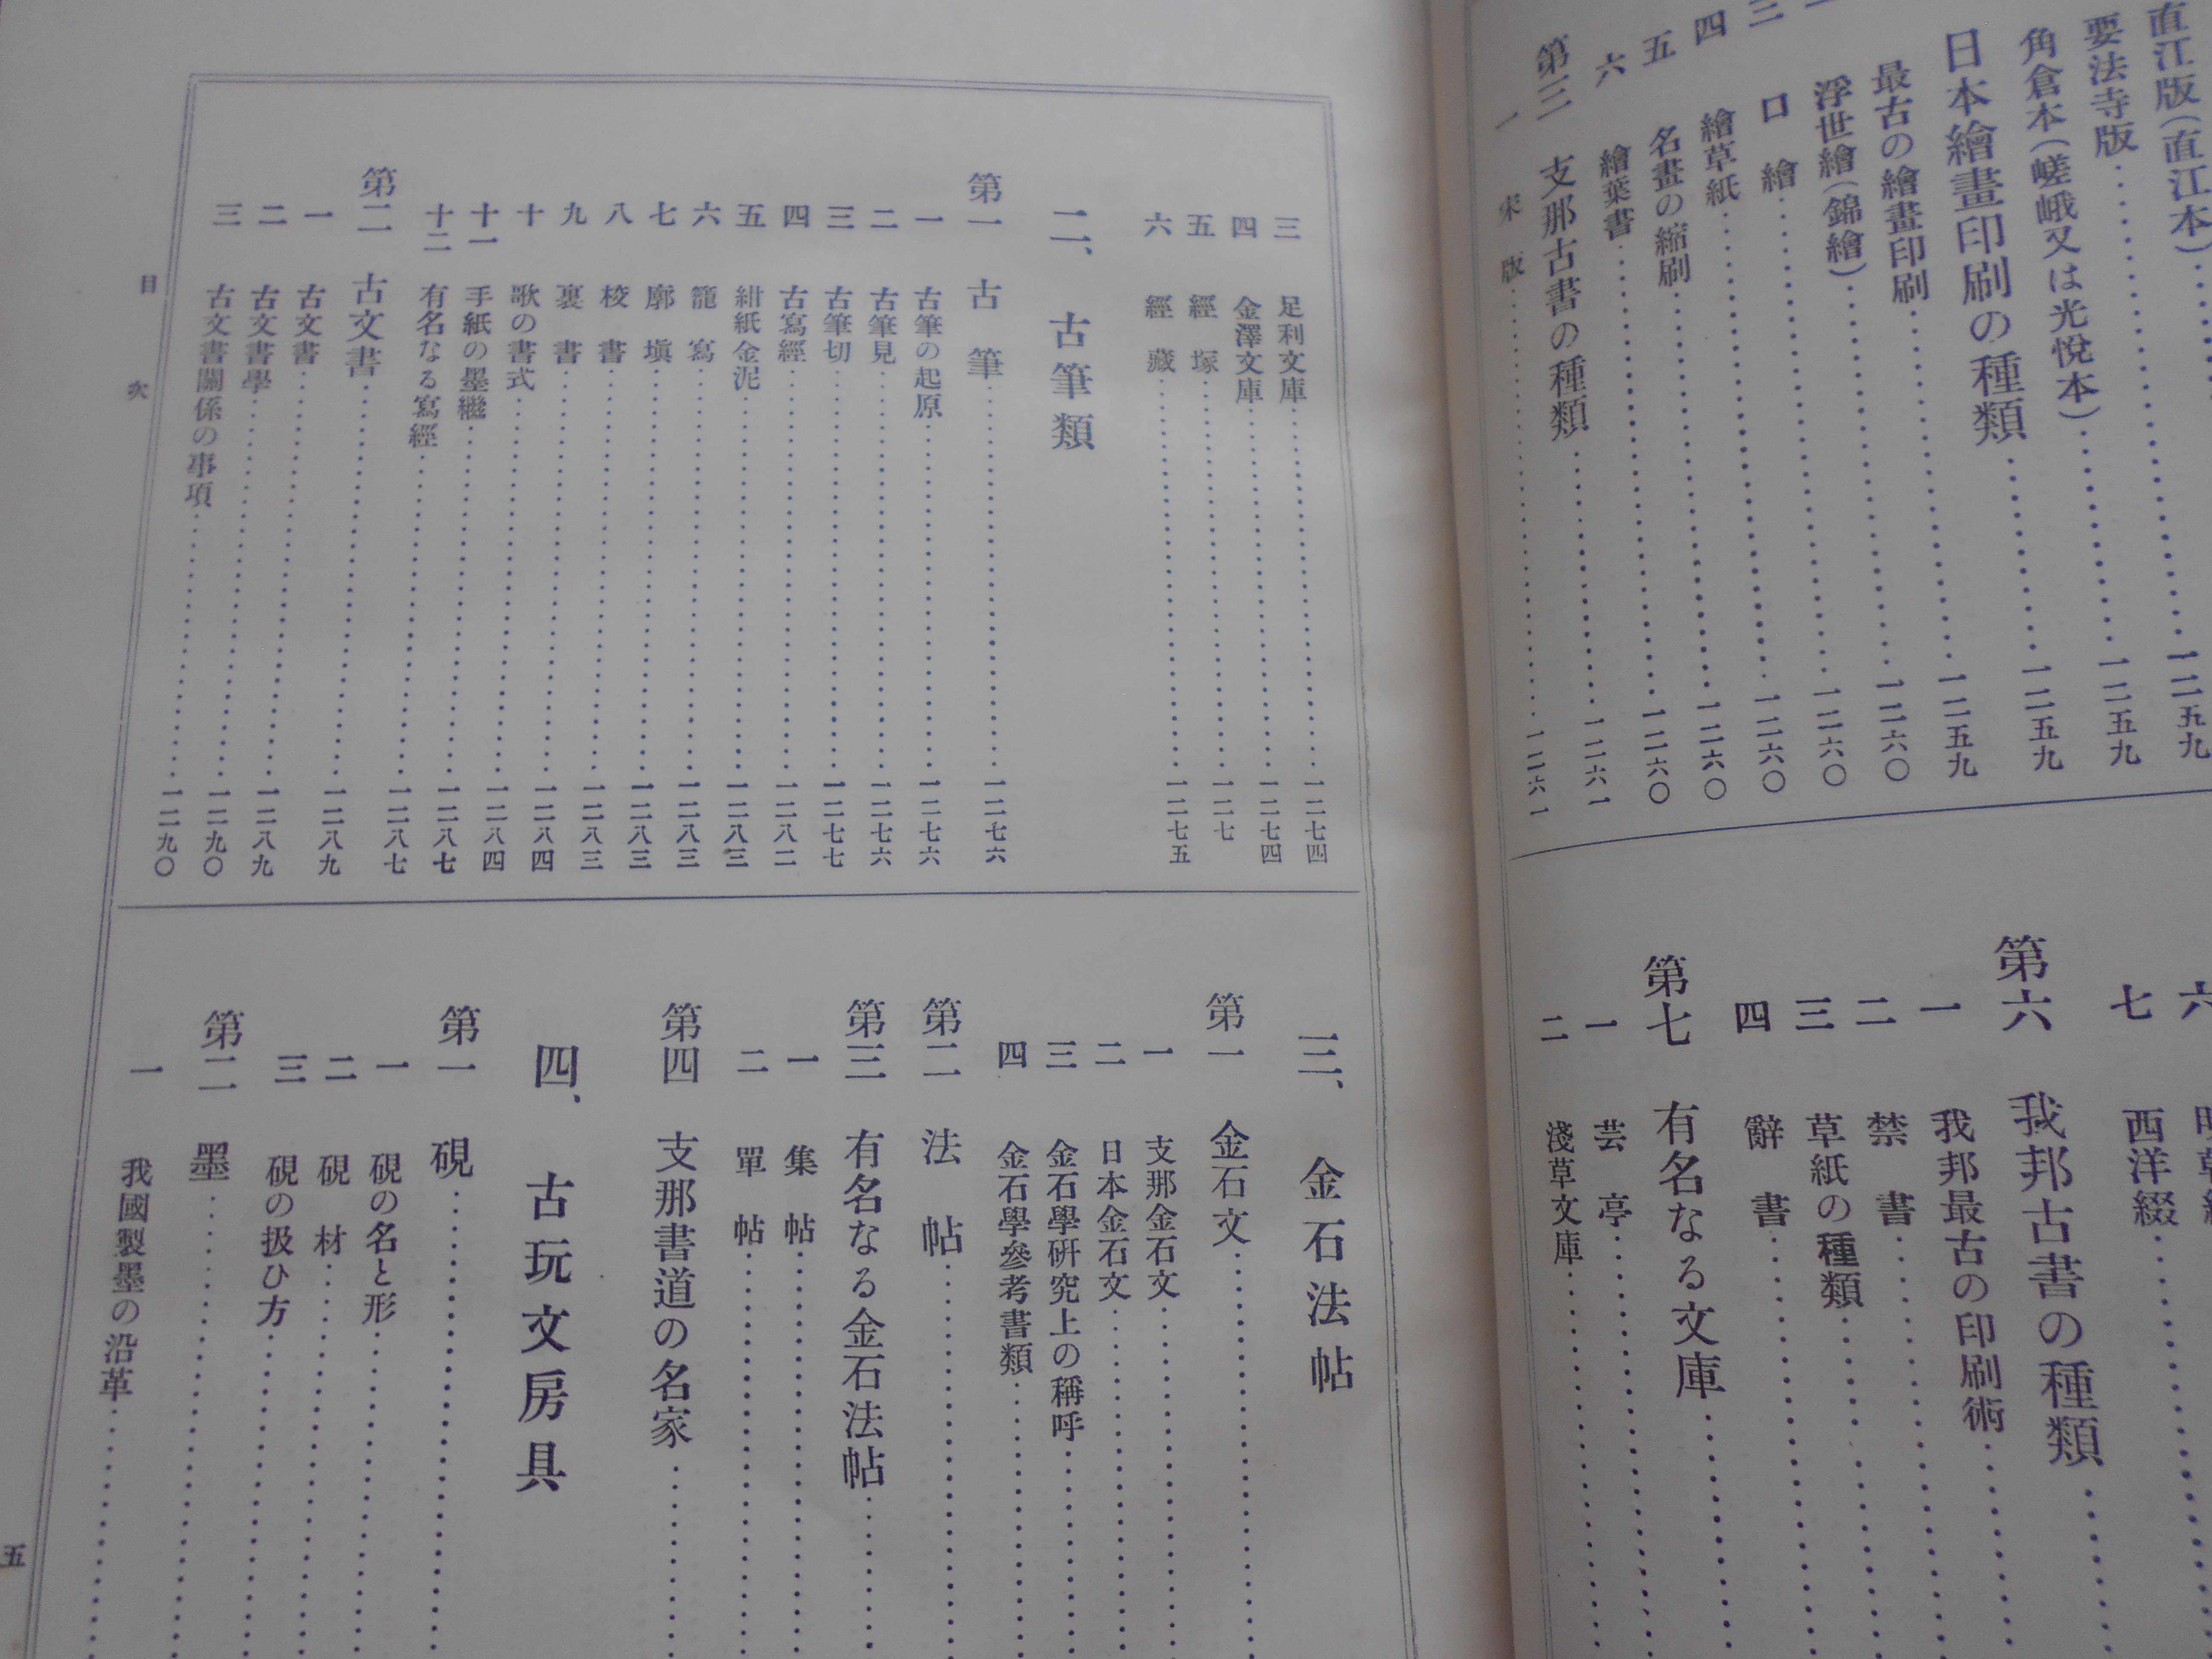 直江版(直江本)一二五九
要法寺版一二五九
角倉本(嵯峨又は光悅本)一二五九
日本繪畫印刷の種類一二五九
最古の繪畫印刷一二六〇
浮世繪(錦繪)一二六〇
三 口繪一二六〇
四 繪草紙一二六〇
五 名畫の縮刷一二六〇
六 繪葉書一二六一
第三 支那古書の種類
一 宋版一二六一
六
七 西洋綴
第六 我邦古書の種類
一 我邦最古の印刷術
二 禁書
三 草紙の種類
四 辭書
第七 有名なる文庫
一 芸亭
二 淺草文庫
三 足利文庫一二七四
四 金澤文庫一二七四
五 經塚一二七
六 經藏一二七五
二、古筆類
第一 古筆一二七六
一 古筆の起原一二七六
二 古筆見一二七六
三 古筆切一二七七
四 古寫經一二八二
五 紺紙金泥一二八三
六 籠寫一二八三
七 廓塡一二八三
八 棱書一二八三
九 裏書一二八四
十 歌の書式一二八四
十一 手紙の墨繼一二八七
十二 有名なる寫經一二八七
第二 古文書一二八九
一 古文書一二八九
二 古文書學一二九〇
三 古文書關係の事項一二九〇
三、金石法帖
第一 金石文
一 支那金石文
二 日本金石文
三 金石學硏究上の稱呼
四 金石學參考書類
第二 法帖
第三 有名なる金石法帖
一 集帖
二 單帖
第四 支那書道の名家
四、古玩文房具
第一 硯
一 硯の名と形
二 硯材
三 硯の扱ひ方
第二 墨
一 我國製墨の沿革
目次
五